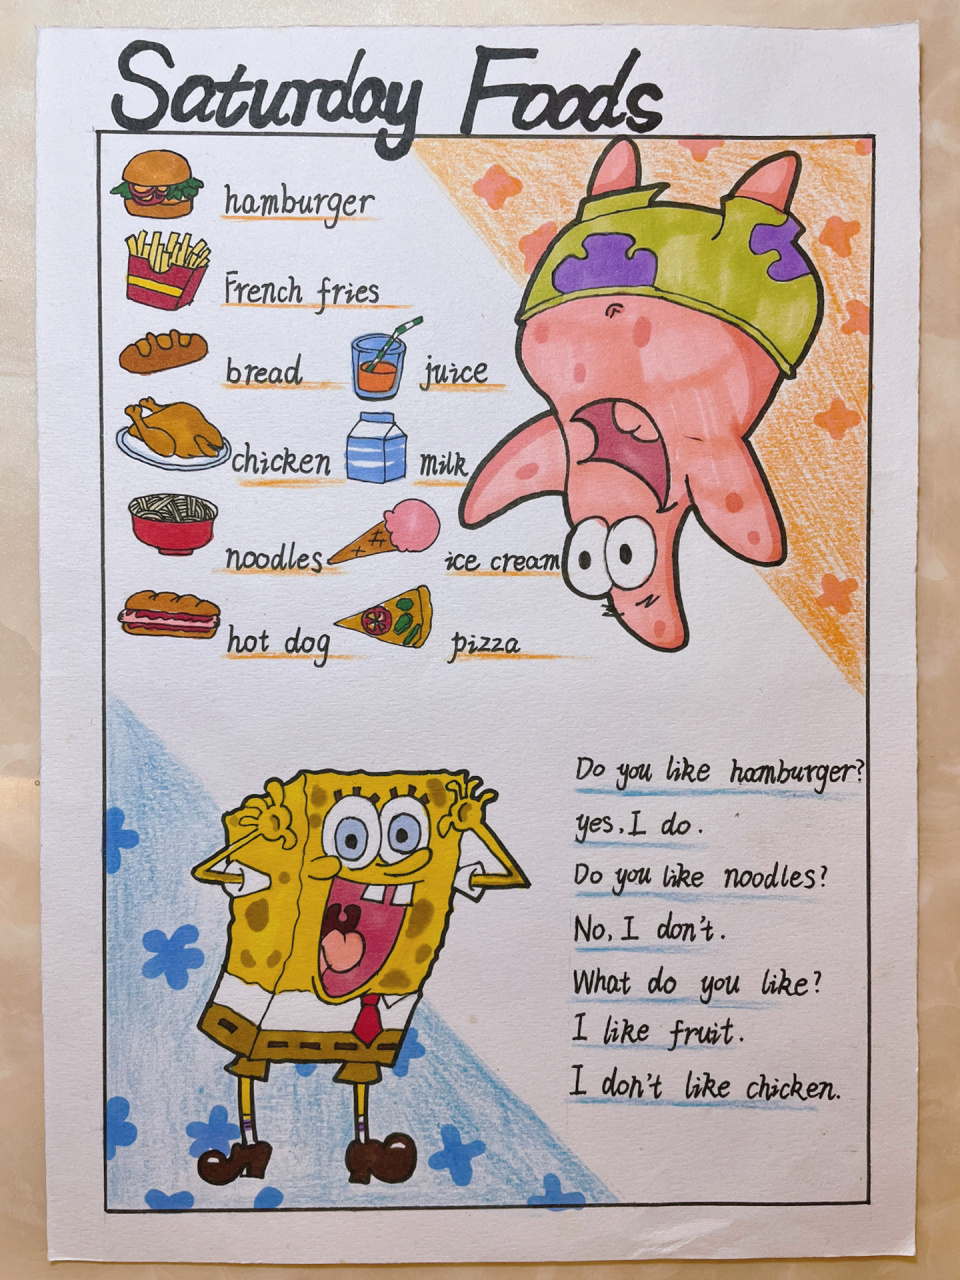 Saturday Foods
hamburger
French fries
bread
juice
chicken
milk
noodles
ice cream
hot dog
pizza
Do you like hamburger?
yes, I do.
Do you like noodles?
No, I don't.
What do you like?
I like fruit.
I don't like chicken.